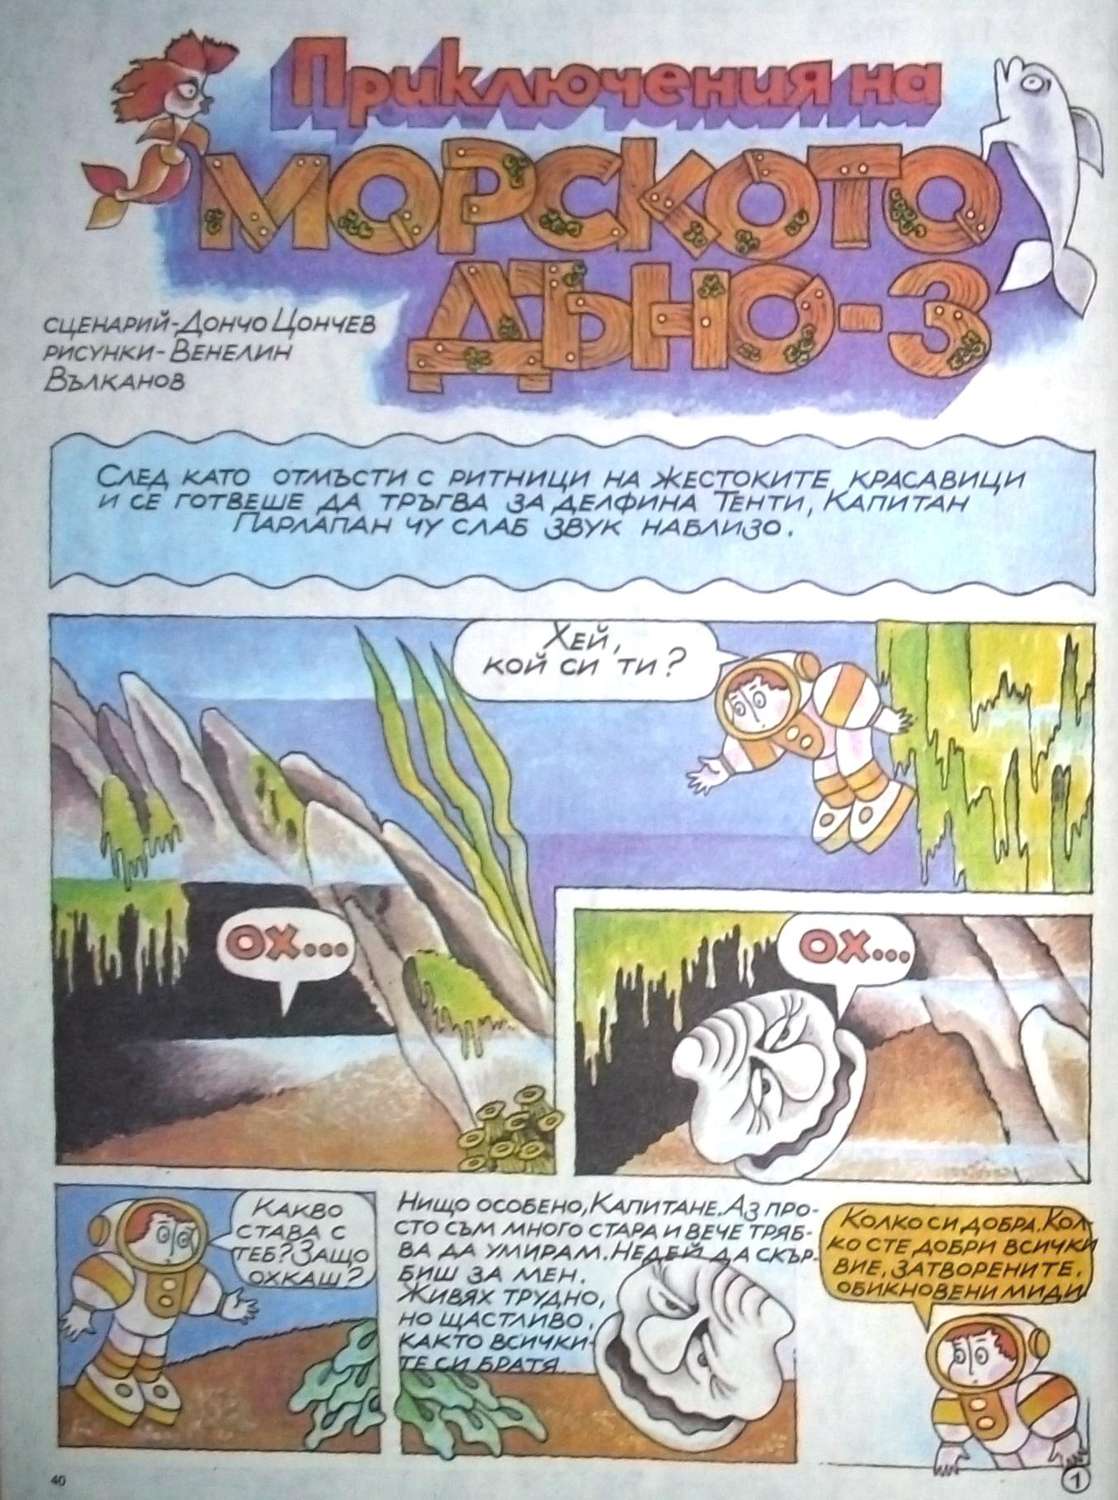 Приключения на
МОРСКОТО
ДЪНО-3
СЦЕНАРИЙ-ДОНЧО ЦОНЧЕВ
РИСУНКИ-ВЕНЕЛИН
ВЪЛКАНОВ
СЛЕД КАТО ОТМЪСТИ С РИТНИЦИ НА ЖЕСТОКИТЕ КРАСАВИЦИ
И СЕ ГОТВЕШЕ ДА ТРЪГВА ЗА ДЕЛФИНА ТЕНТИ, КАПИТАН
ПАРЛАПАН ЧУ СЛАБ ЗВУК НАБЛИЗО.
ХЕЙ,
КОЙ СИ ТИ?
ОХ...
ОХ...
КАКВО
СТАВА С
ТЕБ? ЗАЩО
ОХКАШ?
НИЩО ОСОБЕНО, КАПИТАНЕ. АЗ ПРО-
СТО СЪМ МНОГО СТАРА И ВЕЧЕ ТРЯБ-
ВА ДА УМИРАМ. НЕДЕЙ ДА СКЪР-
БИШ ЗА МЕН.
ЖИВЯХ ТРУДНО,
НО ЩАСТЛИВО,
КАКТО ВСИЧКИ-
ТЕ СИ БРАТЯ.
КОЛКО СИ ДОБРА. КОЛ-
КО СТЕ ДОБРИ ВСИЧКИ
ВИЕ, ЗАТВОРЕНИТЕ,
ОБИКНОВЕНИ МИДИ
40
1